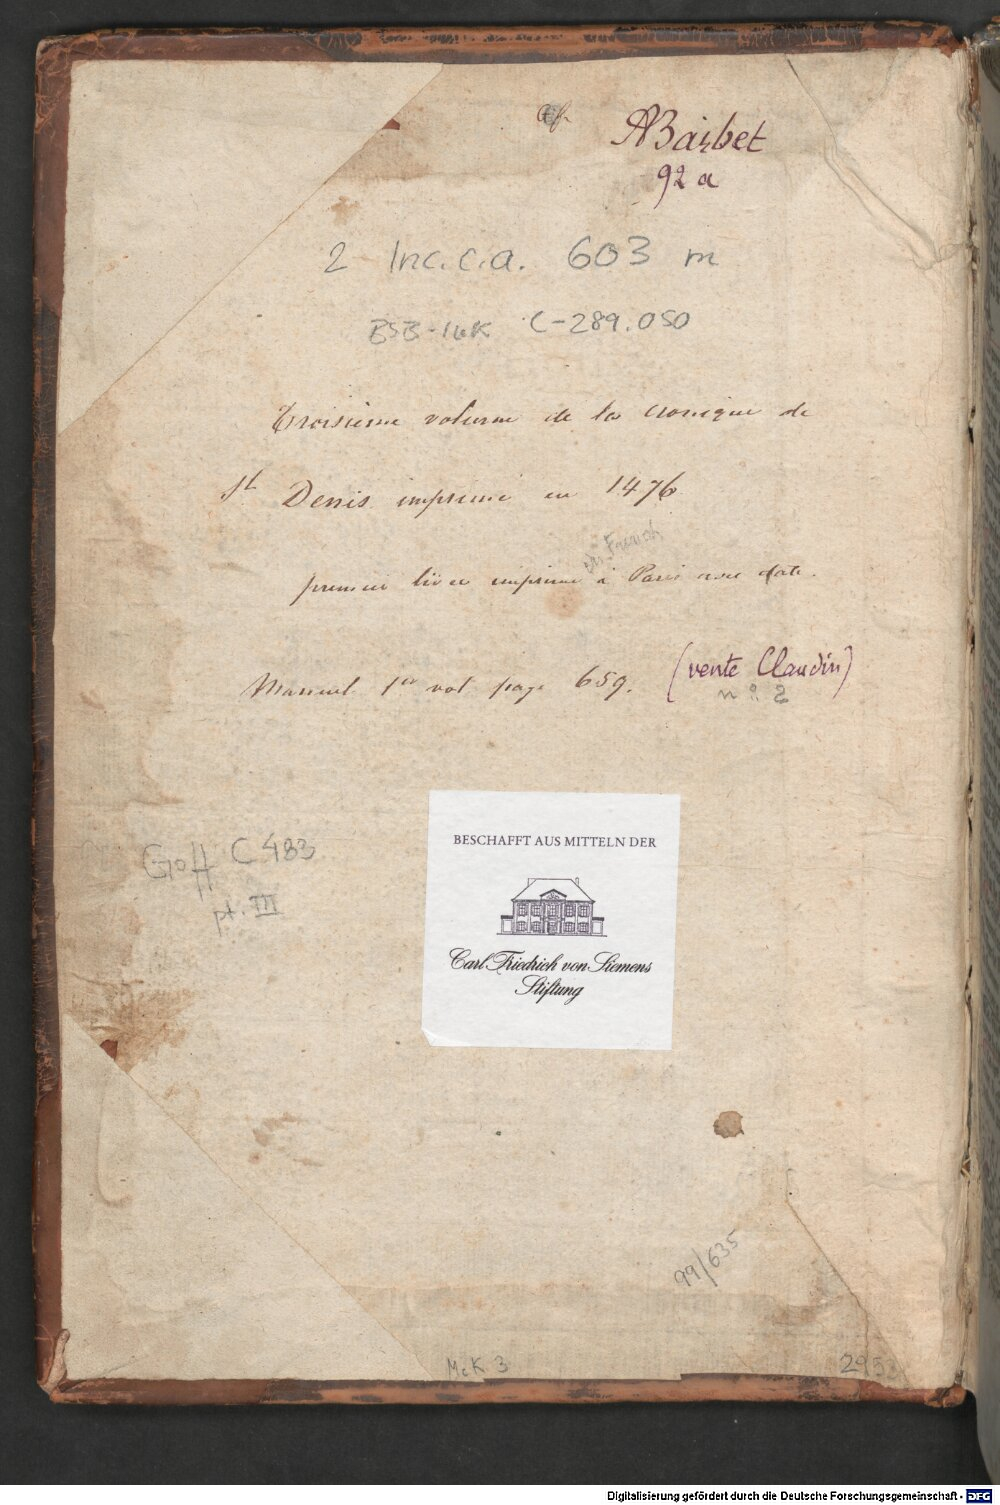 ABarbet
92 a
2 Inc.c.a. 603 m
BSB-Ink C-289.050
Troisieme volume de la cronique de
st Denis imprimé en 1476
in French
premier livre imprimé à Paris avec date.
Manuel 1er vol page 659. (vente Claudin)
n° 2
BESCHAFFT AUS MITTELN DER
Carl Friedrich von Siemens
Stiftung
Goff C 483
pt. III
99/635
McK 3
Digitalisierung gefördert durch die Deutsche Forschungsgemeinschaft - DFG